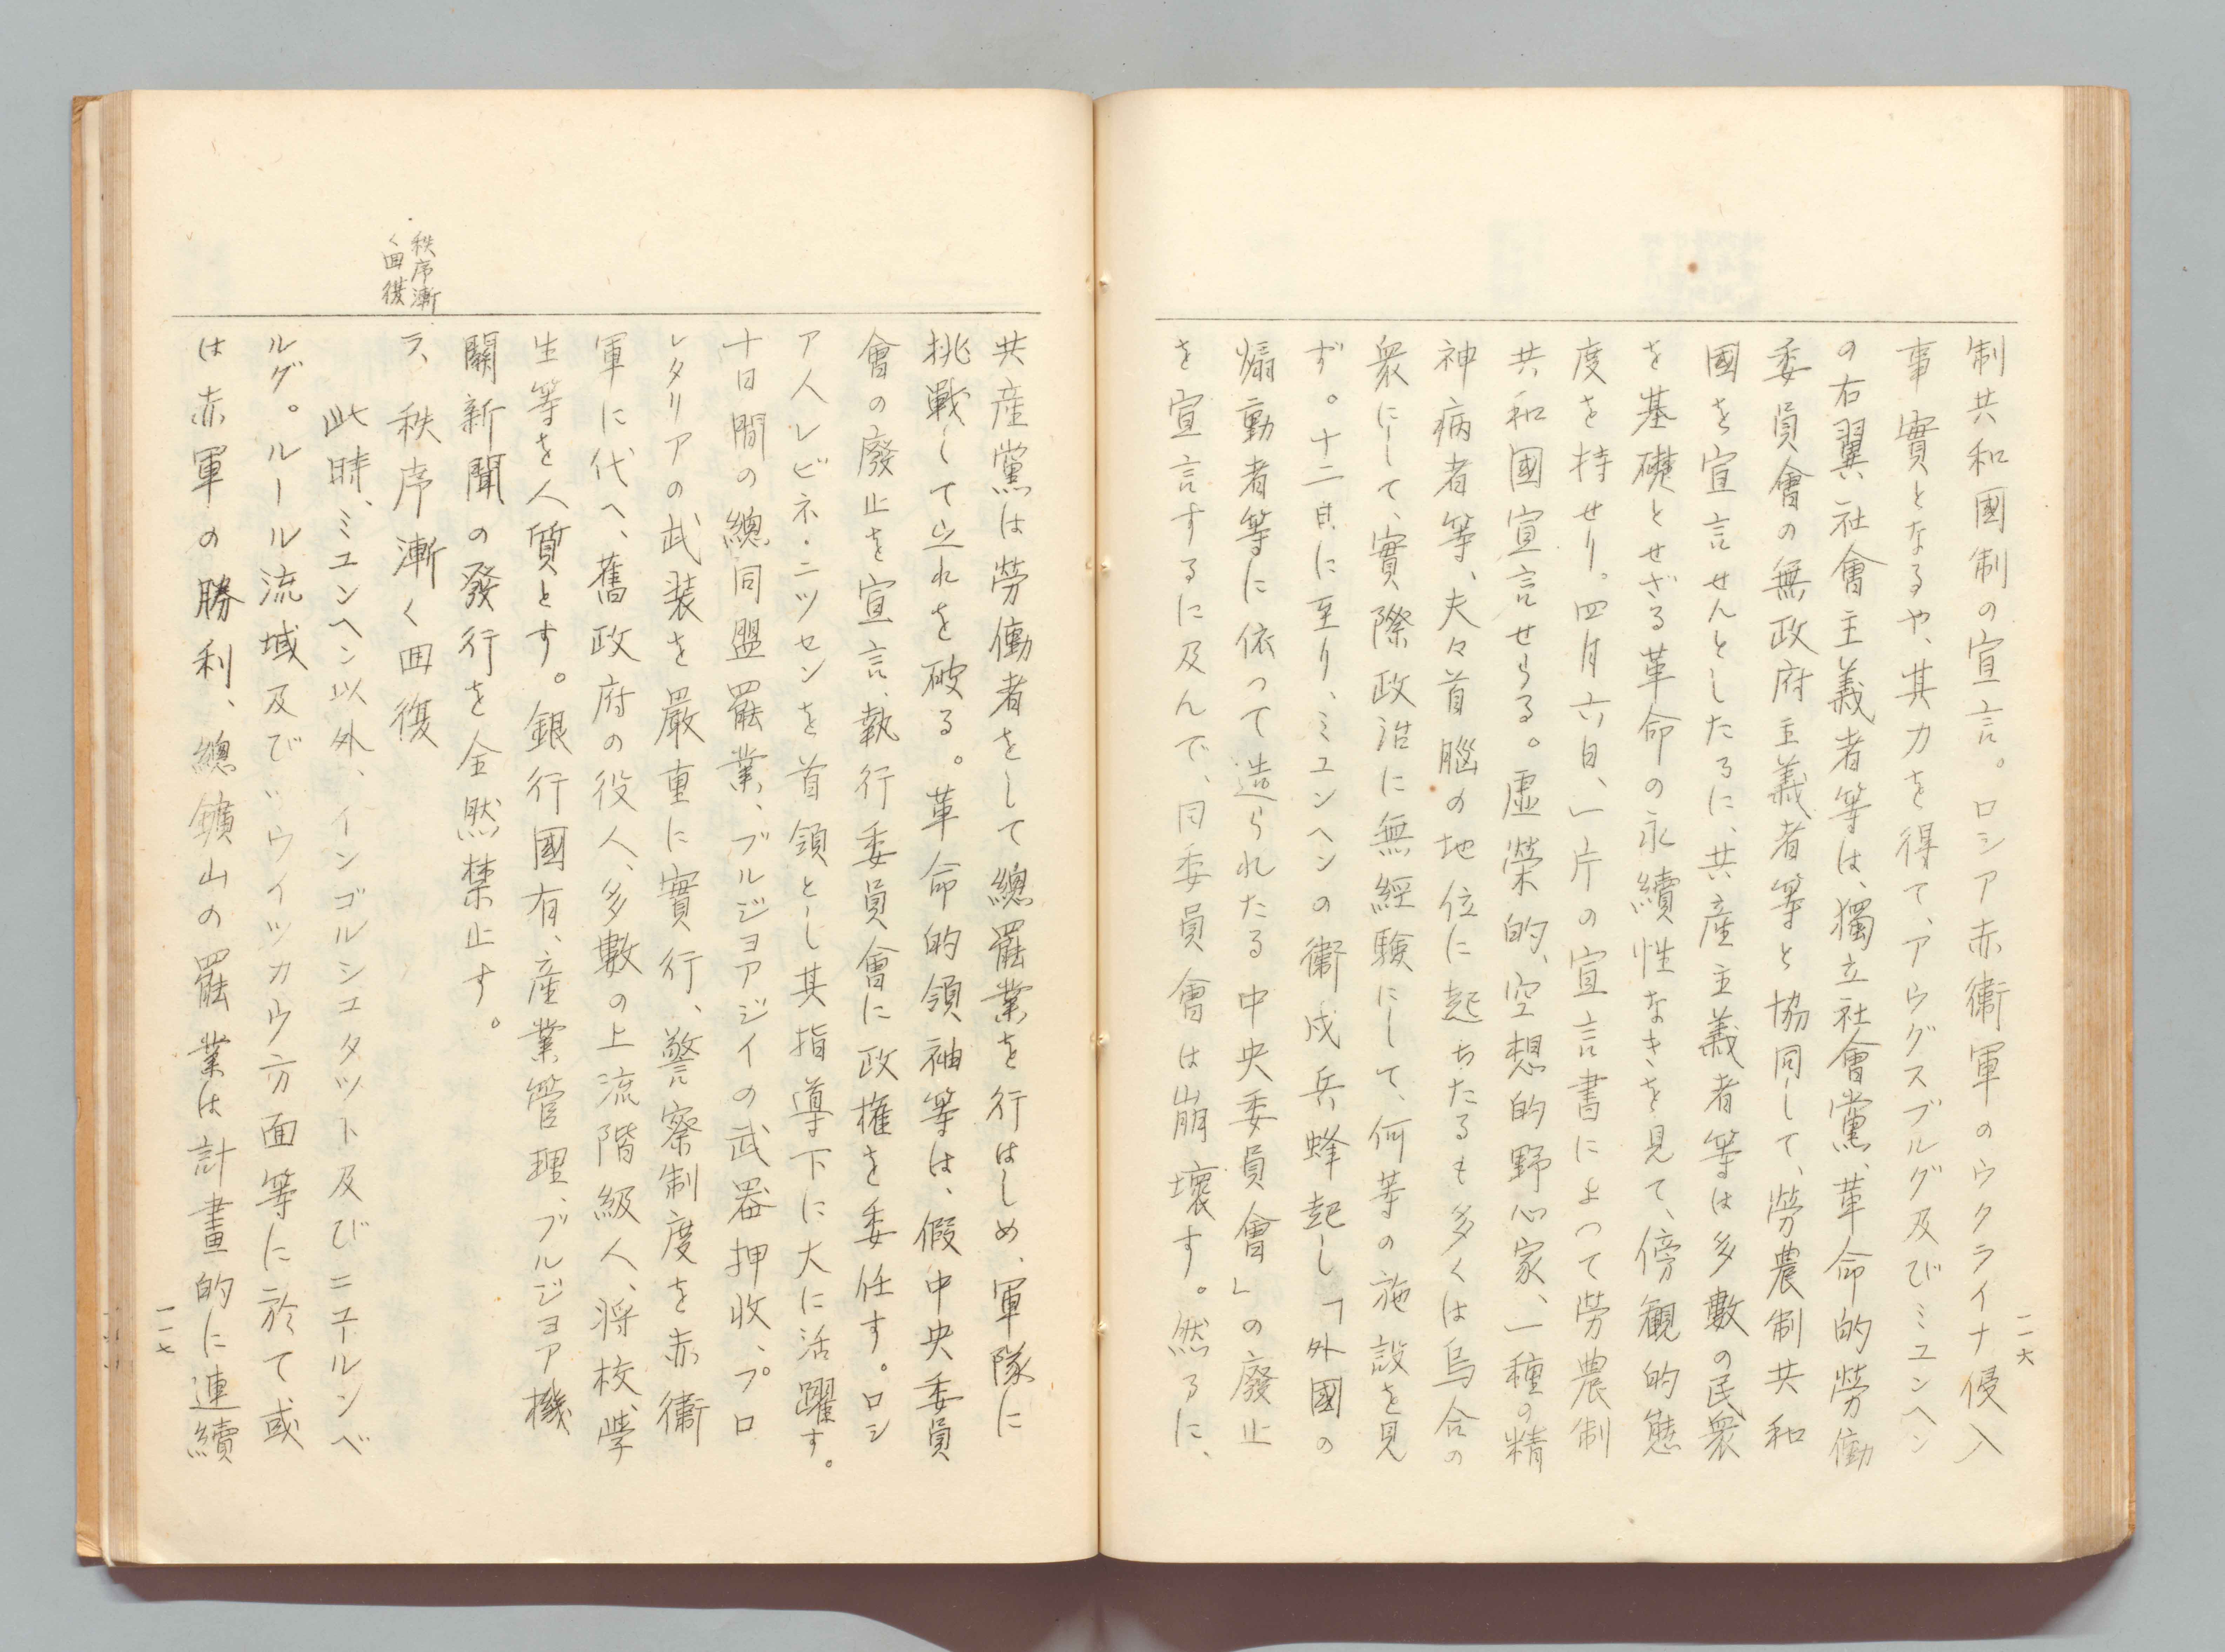 制共和國制の宣言。ロシア赤衞軍のウクライナ侵入
事實となるや、其力を得て、アウグスブルグ及びミユンヘン
の右翼社會主義者等は、獨立社會黨、革命的勞働
委員會の無政府主義者等と協同して、勞農制共和
國を宣言せんとしたるに、共産主義者等は多數の民衆
を基礎とせざる革命の永續性なきを見て、傍観的態
度を持せり。四月六日、一片の宣言書によつて勞農制
共和國宣言せらる。虚榮的、空想的野心家、一種の精
神病者等、夫々首腦の地位に起ちたるも多くは烏合の
衆にして、實際政治に無經驗にして、何等の施設を見
ず。十二日に至り、ミユンヘンの衞戍兵蜂起し「外國の
煽動者等に依つて造られたる中央委員會」の廢止
を宣言するに及んで、同委員會は崩壞す。然るに、
一一六
共産黨は勞働者をして總罷業を行はしめ、軍隊に
挑戰して之れを破る。革命的領袖等は、假中央委員
會の廢止を宣言、執行委員會に政權を委任す。ロシ
ア人レビネ・ニツセンを首領とし其指導下に大に活躍す。
十日間の總同盟罷業、ブルジヨアジイの武器押收、プロ
レタリアの武装を嚴重に實行、警察制度を赤衞
軍に代へ、舊政府の役人、多數の上流階級人、将校、學
生等を人質とす。銀行國有、産業管理、ブルジヨア機
關新聞の發行を全然禁止す。
秩序漸
く囬復
ラ、秩序漸く囬復
此時、ミユンヘン以外、インゴルシユタツト及びニユールンベ
ルグ。ルール流域及びツウイツカウ方面等に於て或
は赤軍の勝利、總鑛山の罷業は計畫的に連續
一一七